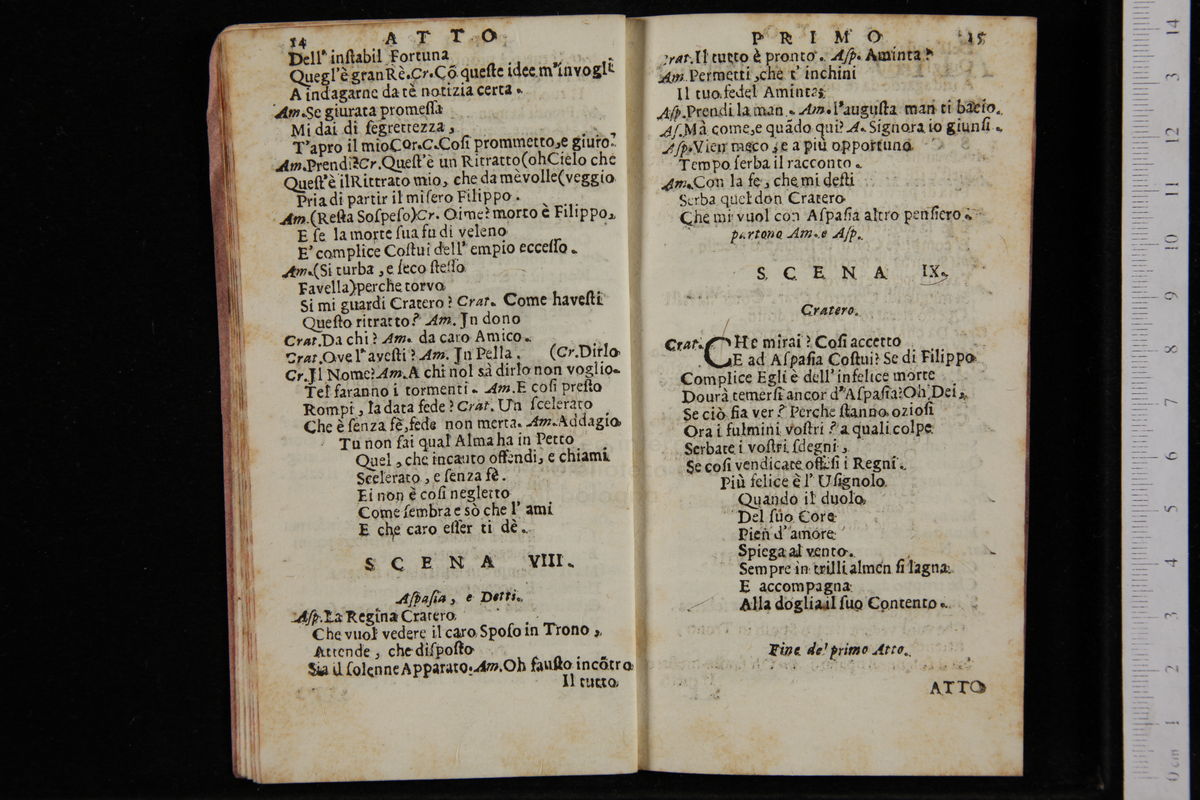 14 ATTO
Dell' inſtabil Fortuna
Quegl'è gran Rè. Cr. Cõ queſte idee m'invogli
A indagarne da tè notizia certa.
Am. Se giurata promeſſa
Mi dai di ſegrettezza,
T'apro il mio Cor. C. Coſi prommetto, e giuro.
Am. Prendi? Cr. Queſt'è un Ritratto (oh Cielo che
Queſt'è il Rittrato mio, che da mè volle (veggio
Pria di partir il miſero Filippo.
Am. (Reſta Soſpeſo) Cr. Oime? morto è Filippo,
E ſe la morte ſua fu di veleno
E' complice Coſtui dell' empio ecceſſo.
Am. (Si turba, e ſeco ſteſſo
Favella) perche torvo
Si mi guardi Cratero? Crat. Come haveſti
Queſto ritratto? Am. Jn dono
Crat. Da chi? Am. da caro Amico.
Crat. Ove l'aveſti? Am. Jn Pella. (Cr. Dirlo
Cr. Jl Nome? Am. A chi nol sà dirlo non voglio.
Tel faranno i tormenti. Am. E coſi preſto
Rompi, la data fede? Crat. Un ſcelerato
Che è ſenza fè, fede non merta. Am. Addagio
Tu non ſai qual Alma ha in Petto
Quel, che incauto offendi, e chiami
Scelerato, e ſenza fè.
Ei non è coſi negletto
Come ſembra e sò che l' ami
E che caro eſſer ti dè.
SCENA VIII.
Aſpaſia, e Detti.
Aſp. La Regina Cratero
Che vuol vedere il caro Spoſo in Trono,
Attende, che diſpoſto
Sia il ſolenne Apparato. Am. Oh fauſto incõtro
Il tutto
PRIMO 15
Crat. Il tutto è pronto. Aſp. Aminta?
Am. Permetti, che t' inchini
Il tuo fedel Aminta;
Aſp. Prendi la man. Am. l'auguſta man ti bacio.
Aſ. Mà come, e quãdo qui? A. Signora io giunſi.
Aſp. Vien meco, e a più opportuno
Tempo ſerba il racconto.
Am. Con la fe, che mi deſti
Serba quel don Cratero
Che mi vuol con Aſpaſia altro penſiero.
partono Am. e Aſp.
SCENA IX.
Cratero.
Crat. CHe mirai? Coſi accetto
E ad Aſpaſia Coſtui? Se di Filippo
Complice Egli è dell' infelice morte
Dourà temerſi ancor d'Aſpaſia? Oh Dei,
Se ciò ſia ver? Perche ſtanno ozioſi
Ora i fulmini voſtri? a quali colpe
Serbate i voſtri ſdegni,
Se coſi vendicate offeſi i Regni.
Più felice è l' Uſignolo
Quando il duolo
Del ſuo Core
Pien d'amore
Spiega al vento.
Sempre in trilli almen ſi lagna
E accompagna
Alla doglia il ſuo Contento.
Fine de' primo Atto.
ATTO
0 cm 1 2 3 4 5 6 7 8 9 10 11 12 3 14